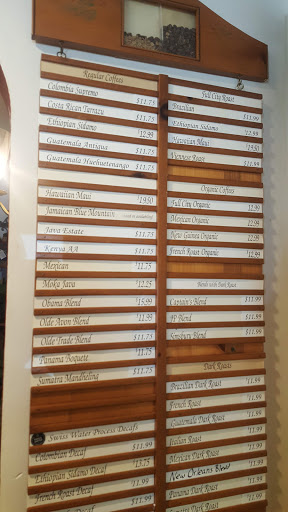 Regular Coffees
Colombia Supremo $11.75
Costa Rican Tarrazu $11.75
Ethiopian Sidamo 12.99
Guatemala Antigua $11.75
Guatemala Huehuetenango $11.75
Hawaiian Maui $19.50
Jamaican Blue Mountain
Java Estate $11.75
Kenya AA $11.75
Mexican $11.75
Moka Java $12.25
Obama Blend
Olde Avon Blend $11.99
Olde Trade Blend $11.75
Panama Boquete $11.75
Sumatra Mandheling $11.75
Swiss Water Process Decafs
Colombian Decaf $11.99
Ethiopian Sidamo Decaf $13.75
French Roast Decaf $11.99
Full City Roast
Brazilian $11.99
Ethiopian Sidamo $12.99
Hawaiian Maui
Viennese Roast
Organic Coffees
Full City Organic $12.99
Mexican Organic $12.99
New Guinea Organic $12.99
French Roast Organic $12.99
Blends with Dark Roast
Captain's Blend $11.99
JP Blend $11.99
Simsbury Blend $11.99
Dark Roasts
Brazilian Dark Roast $11.99
French Roast $11.99
Guatemala Dark Roast $11.99
Italian Roast $11.99
Mexican Dark Roast $11.99
New Orleans Blend
Panama Dark Roast $11.99